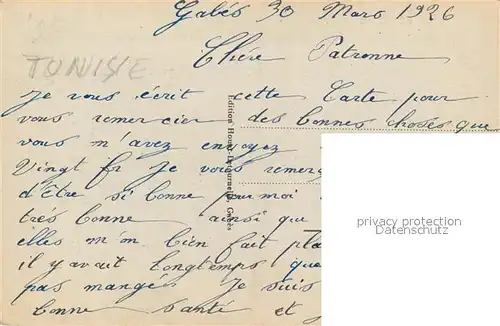 Gabès 30 Mars 1926
TUNISIE
Chère Patronne
Je vous écrit cette Carte pour
vous remercier des bonnes choses que
vous m'avez envoyez
Vingt fr Je vous remerç
d'être si bonne pour moi
très bonne ainsi que
elles m'on bien fait pla
il y avait longtemps que
pas mangé. Je suis
bonne santé et
Edition Gabès
privacy protection
Datenschutz